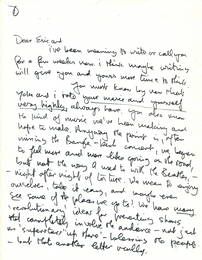 Dear Eric and
I've been meaning to write or call you
for a few weeks now. I think maybe writing
will give you and yours more time to think.
You must know by now that
Yoko and I rate your music and yourself
very highly, always have. You also know
the kind of music we've been making and
hope to make. Anyway the point is, after
missing the Bangla-Desh concert, we began
to feel more and more like going on the road,
but not the way I used to with the Beatles –
night after night of torture. We mean to enjoy
ourselves, take it easy, and maybe even
see some of the places we go to! We have many
revolutionary ideas for presenting shows
that completely involve the audience – not just
as 'superstars' up there – blessing the people
– but that's another letter really.